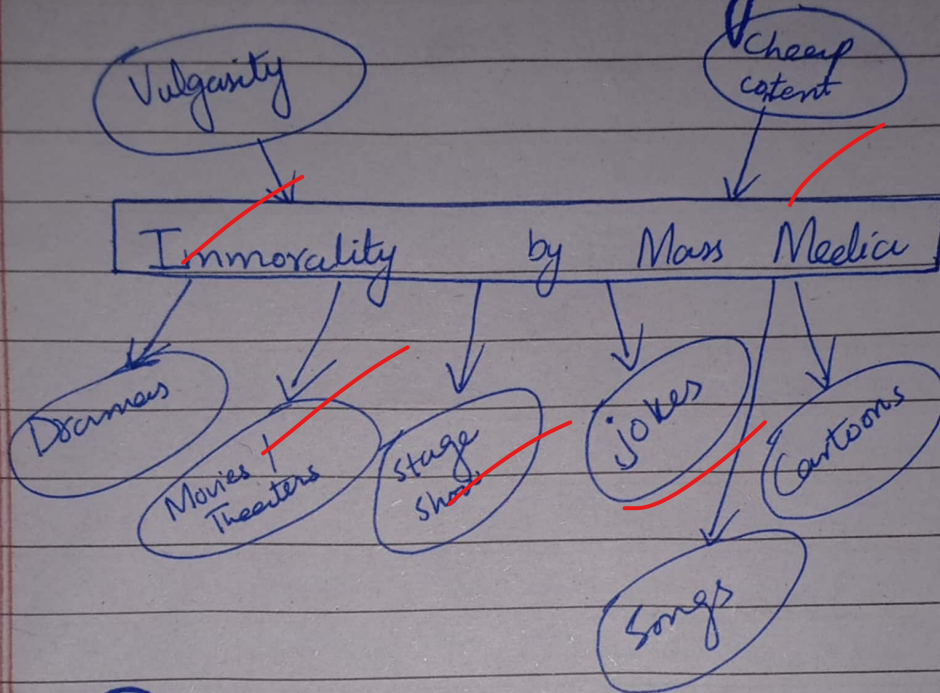 Vulgarity
Cheap
cotent
Immorality by Mass Media
Dramas
Movies /
Theeters
Stage
Show
jokes
Cartoons
Songs